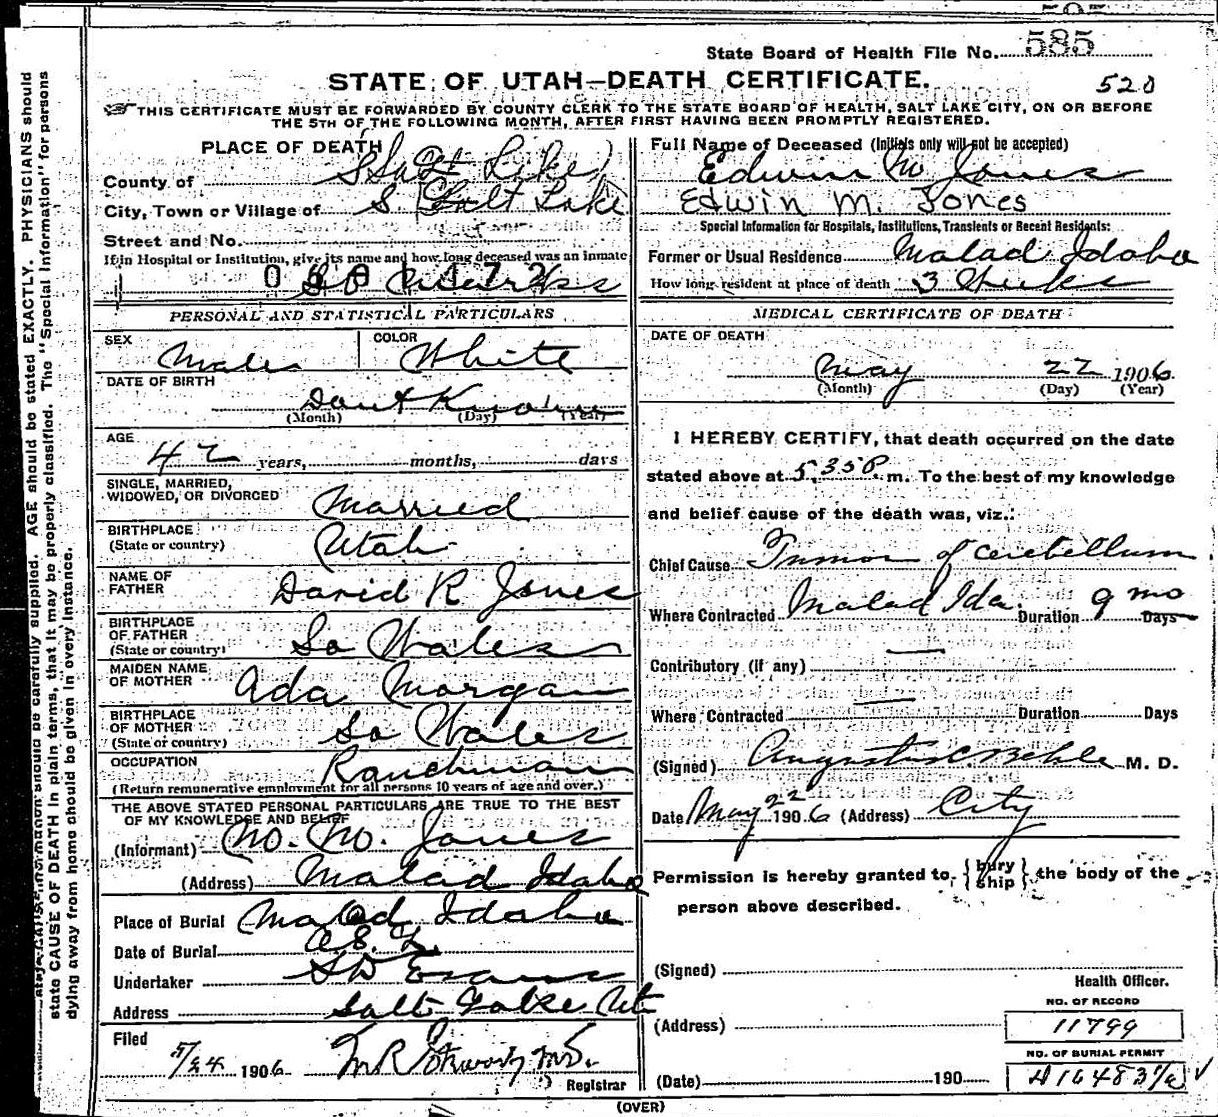 585
State Board of Health File No. 585
STATE OF UTAH—DEATH CERTIFICATE.
520
THIS CERTIFICATE MUST BE FORWARDED BY COUNTY CLERK TO THE STATE BOARD OF HEALTH, SALT LAKE CITY, ON OR BEFORE
THE 5TH OF THE FOLLOWING MONTH, AFTER FIRST HAVING BEEN PROMPTLY REGISTERED.
PLACE OF DEATH
County of Salt Lake
City, Town or Village of Salt Lake
Street and No.
If in Hospital or Institution, give its name and how long deceased was an inmate
PERSONAL AND STATISTICAL PARTICULARS
SEX Male
COLOR White
DATE OF BIRTH
Dont Know
(Month) (Day) (Year)
AGE
42 years, months, days
SINGLE, MARRIED,
WIDOWED, OR DIVORCED Married
BIRTHPLACE
(State or country) Utah
NAME OF
FATHER David R Jones
BIRTHPLACE
OF FATHER
(State or country) So Wales
MAIDEN NAME
OF MOTHER Ada Morgan
BIRTHPLACE
OF MOTHER
(State or country) So Wales
OCCUPATION Ranchman
(Return remunerative employment for all persons 10 years of age and over.)
THE ABOVE STATED PERSONAL PARTICULARS ARE TRUE TO THE BEST
OF MY KNOWLEDGE AND BELIEF
(Informant) Jones
(Address) Malad Idaho
Place of Burial Malad Idaho
Date of Burial
Undertaker S D Evans
Address Salt Lake Ut
Filed
5/24 1906
Registrar
Full Name of Deceased (Initials only will not be accepted)
Edwin M Jones
Edwin M. Jones
Special Information for Hospitals, Institutions, Transients or Recent Residents:
Former or Usual Residence Malad Idaho
How long resident at place of death 3 Weeks
MEDICAL CERTIFICATE OF DEATH
DATE OF DEATH
May 22 1906
(Month) (Day) (Year)
I HEREBY CERTIFY, that death occurred on the date
stated above at 5.35 P m. To the best of my knowledge
and belief cause of the death was, viz.:
Chief Cause Tumor of cerebellum
Where Contracted Malad Ida. Duration 9 mo Days
Contributory (if any) —
Where Contracted — Duration Days
(Signed) Augustus C. Behle M. D.
Date May 22 1906 (Address) City
Permission is hereby granted to {bury ship} the body of the
person above described.
(Signed)
Health Officer.
NO. OF RECORD
(Address) 11799
NO. OF BURIAL PERMIT
(Date) 190
(OVER)
state CAUSE OF DEATH in plain terms, that it may be properly classified. The "Special Information" for persons
dying away from home should be given in every instance.
should be carefully supplied. AGE should be stated EXACTLY. PHYSICIANS should